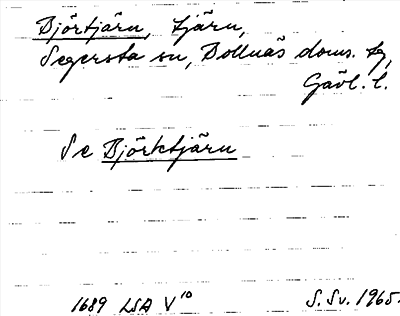 Björtjärn, tjärn,
Segersta sn, Bollnäs doms. tg,
Gävl. l.
Se Björktjärn
1689 LSA V¹⁰ S. Sv. 1965.